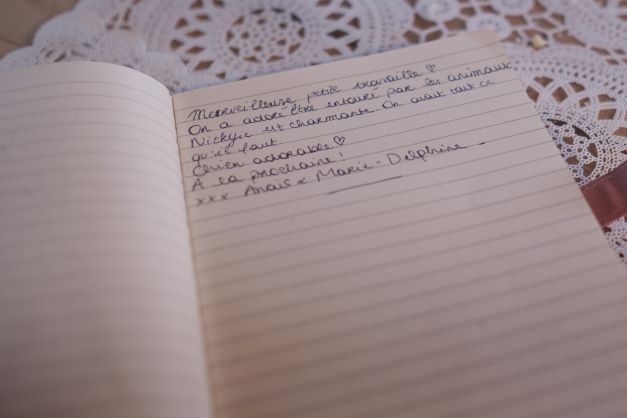 Merveilleuse petite travaille ♡
On a adoré être entouré par les animaux
Nickyie est charmante On avait tout ce
qu'il faut
Chien adorable ♡
À la prochaine!
xxx Anaïs & Marie-Delphine